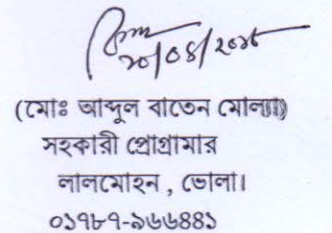 ২০/০৪/২০১৮
(মোঃ আব্দুল বাতেন মোল্যা)
সহকারী প্রোগ্রামার
লালমোহন , ভোলা।
০১৭৮৭-৯৬৬৪৪১